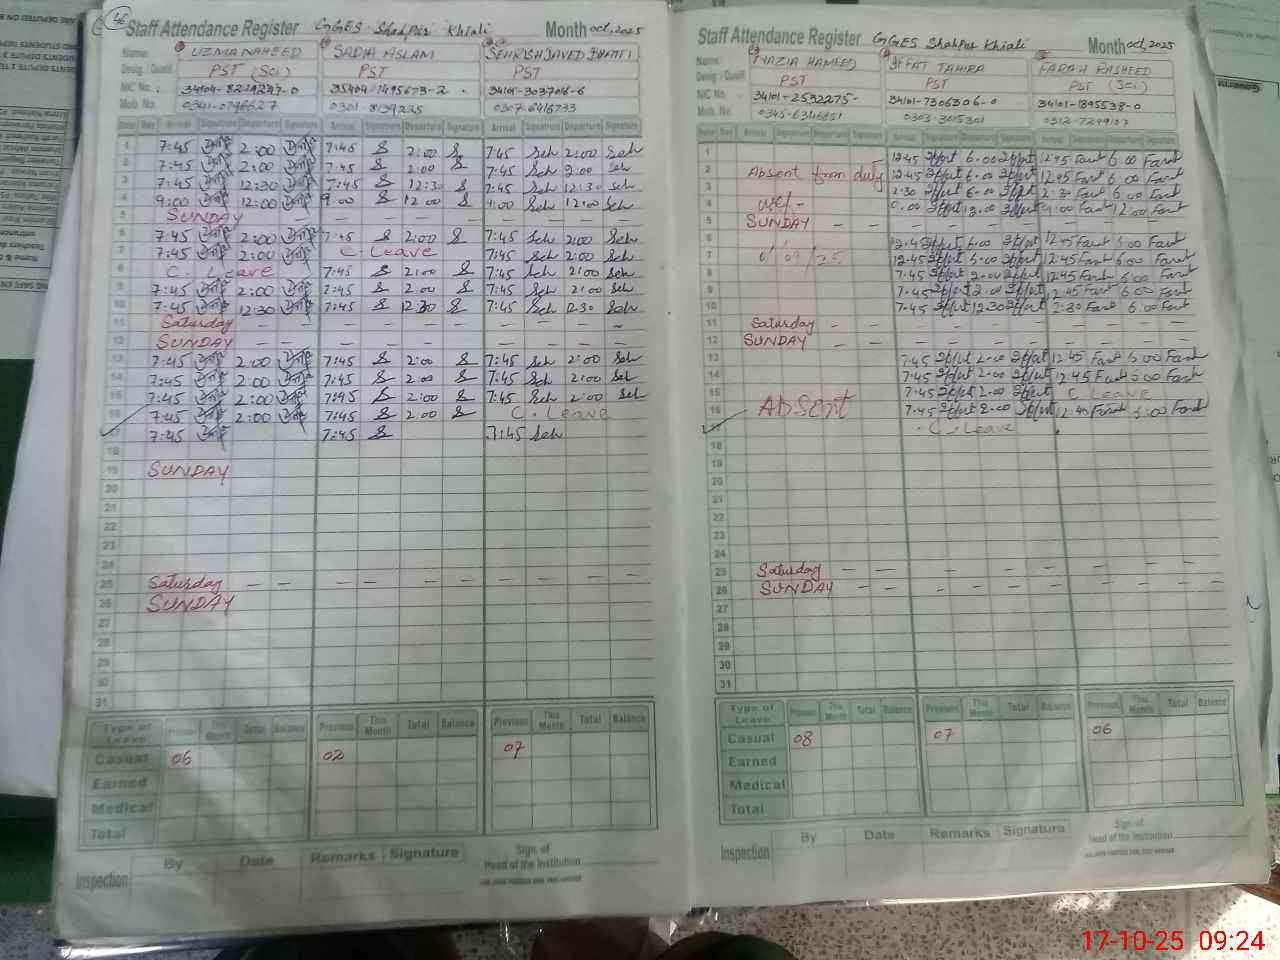 46 Staff Attendance Register GGES Shahpur Khiali Month oct, 2025
Name: UZMA NAHEED SADIA ASLAM SEHRISH JAVED BHATTI
Desig. / Quali PST (Sci) PST PST
NIC No. 35404-1495673-2 34101-3037016-6
Mob. No. 0341-0796627 0301-8139225 0307-6416733
Date Day Arrival Signature Departure Signature Arrival Signature Departure Signature Arrival Signature Departure Signature
1 7:45 2:00 7:45 2:00 7:45 Seh 2:00 Seh
2 7:45 2:00 7:45 2:00 7:45 Seh 2:00 Seh
3 7:45 12:30 7:45 12:30 7:45 Seh 12:30 Seh
4 9:00 12:00 9:00 12:00 9:00 Seh 12:00 Seh
5 SUNDAY - - - - - - - - - -
6 7:45 2:00 7:45 2:00 7:45 Seh 2:00 Seh
7 7:45 2:00 C. Leave 7:45 Seh 2:00 Seh
8 C. Leave 7:45 2:00 7:45 Seh 2:00 Seh
9 7:45 2:00 7:45 2:00 7:45 Seh 2:00 Seh
10 7:45 12:30 7:45 12:30 7:45 Seh 12:30 Seh
11 Saturday - - - - - - - - - -
12 SUNDAY - - - - - - - - - -
13 7:45 2:00 7:45 2:00 7:45 Seh 2:00 Seh
14 7:45 2:00 7:45 2:00 7:45 Seh 2:00 Seh
15 7:45 2:00 7:45 2:00 7:45 Seh 2:00 Seh
16 7:45 2:00 7:45 2:00 C. Leave
17 7:45 7:45 7:45 Seh
18
19 SUNDAY
20
21
22
23
24
25 Saturday - - - - - - - - - -
26 SUNDAY
27
28
29
30
31
Type of Leave Previous This Month Total Balance Previous This Month Total Balance Previous This Month Total Balance
Casual 06 02 07
Earned
Medical
Total
Inspection By Date Remarks Signature Sign. of Head of the Institution
Staff Attendance Register GGES Shahpur Khiali Month oct, 2025
Name: NAZIA HAMEED IFFAT TAHIRA FARAH RASHEED
Desig. / Quali PST PST PST (Sci)
NIC No. 34101-2532275- 34101-7306306-0 34101-1895538-0
Mob. No. 0345-6346651 0303-3015301 0312-7299107
Date Day Arrival Signature Departure Signature Arrival Signature Departure Signature Arrival Signature Departure Signature
1 12:45 6:00 12:45 Farah 6:00 Farah
2 Absent from duty 12:45 6:00 12:45 Farah 6:00 Farah
3 2:30 6:00 2:30 Farah 6:00 Farah
4 w.e.f- 9:00 12:00 9:00 Farah 12:00 Farah
5 SUNDAY - - - - - - - - - -
6 12:45 6:00 12:45 Farah 6:00 Farah
7 12:45 6:00 12:45 Farah 6:00 Farah
8 7:45 2:00 12:45 Farah 6:00 Farah
9 7:45 2:00 12:45 Farah 6:00 Farah
10 7:45 12:30 2:30 Farah 6:00 Farah
11 Saturday - - - - - - - - - -
12 SUNDAY - - - - - - - - - -
13 7:45 2:00 12:45 Farah 6:00 Farah
14 7:45 2:00 12:45 Farah 6:00 Farah
15 7:45 2:00 C. Leave
16 ABSENT 7:45 2:00 12:45 Farah 6:00 Farah
17 C. Leave
18
19
20
21
22
23
24
25 Saturday - - - - - - - - - -
26 SUNDAY - - - - - - - - - -
27
28
29
30
31
Type of Leave Previous This Month Total Balance Previous This Month Total Balance Previous This Month Total Balance
Casual 08 07 06
Earned
Medical
Total
Inspection By Date Remarks Signature Sign. of Head of the Institution
17-10-25 09:24